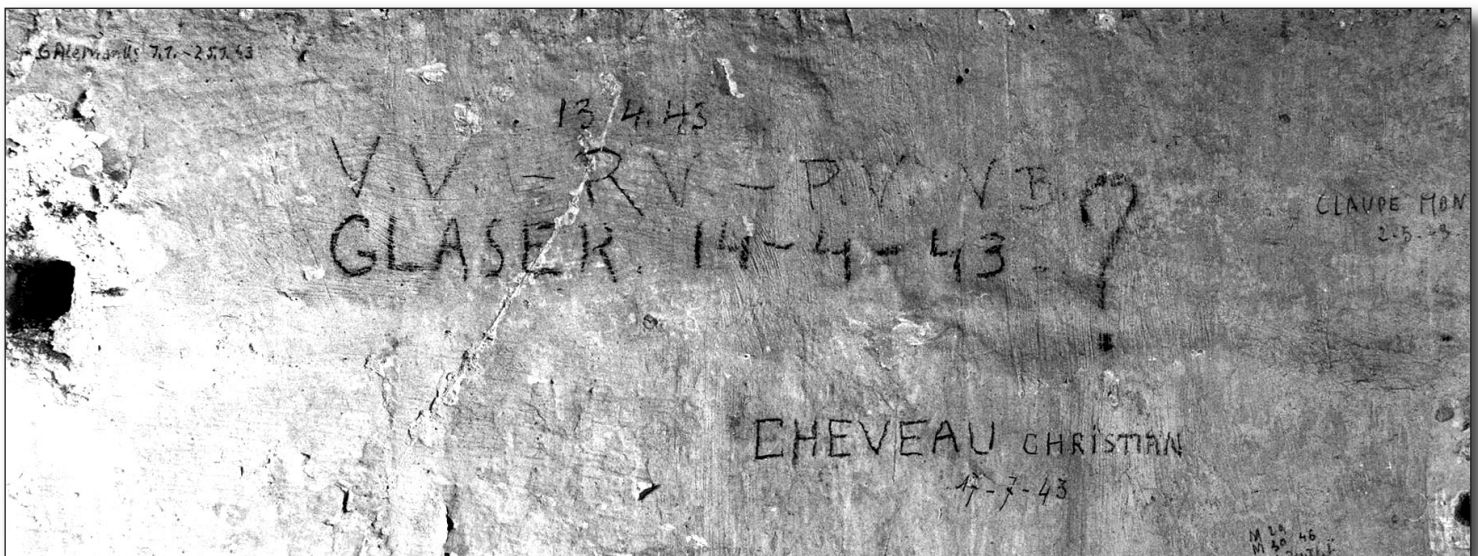 7.1.-25.1.43
13.4.43
V.V - RV - P.V. VB ?
GLASER. 14-4-43-
CLAUDE MON
2-5-43-
CHEVEAU CHRISTIAN
17-7-43